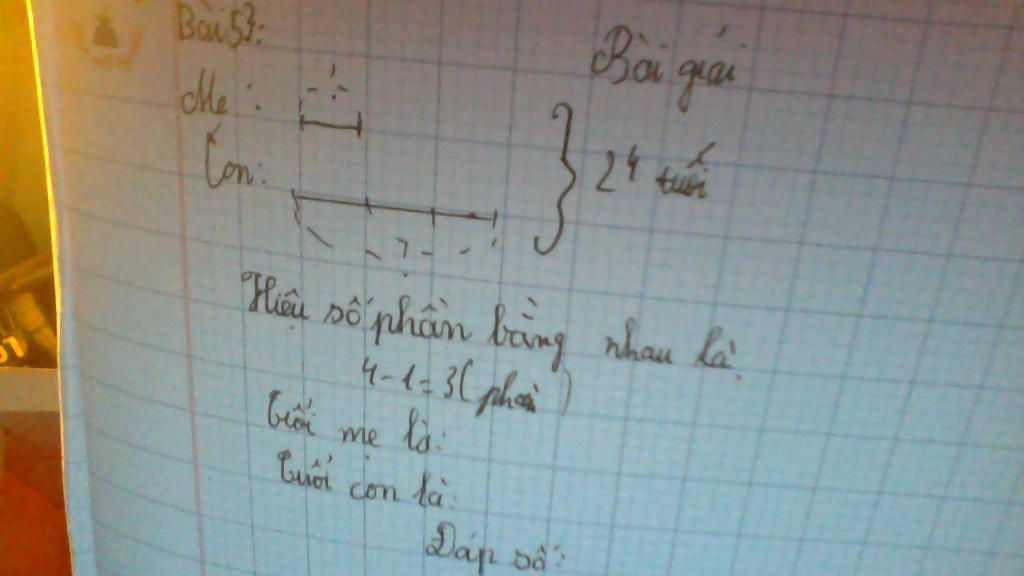 Bài 53:
Bài giải
Mẹ :
?
Con:
} 24 tuổi
?
Hiệu số phần bằng nhau là:
4 - 1 = 3 ( phần )
tuổi mẹ là:
tuổi con là:
Đáp số: